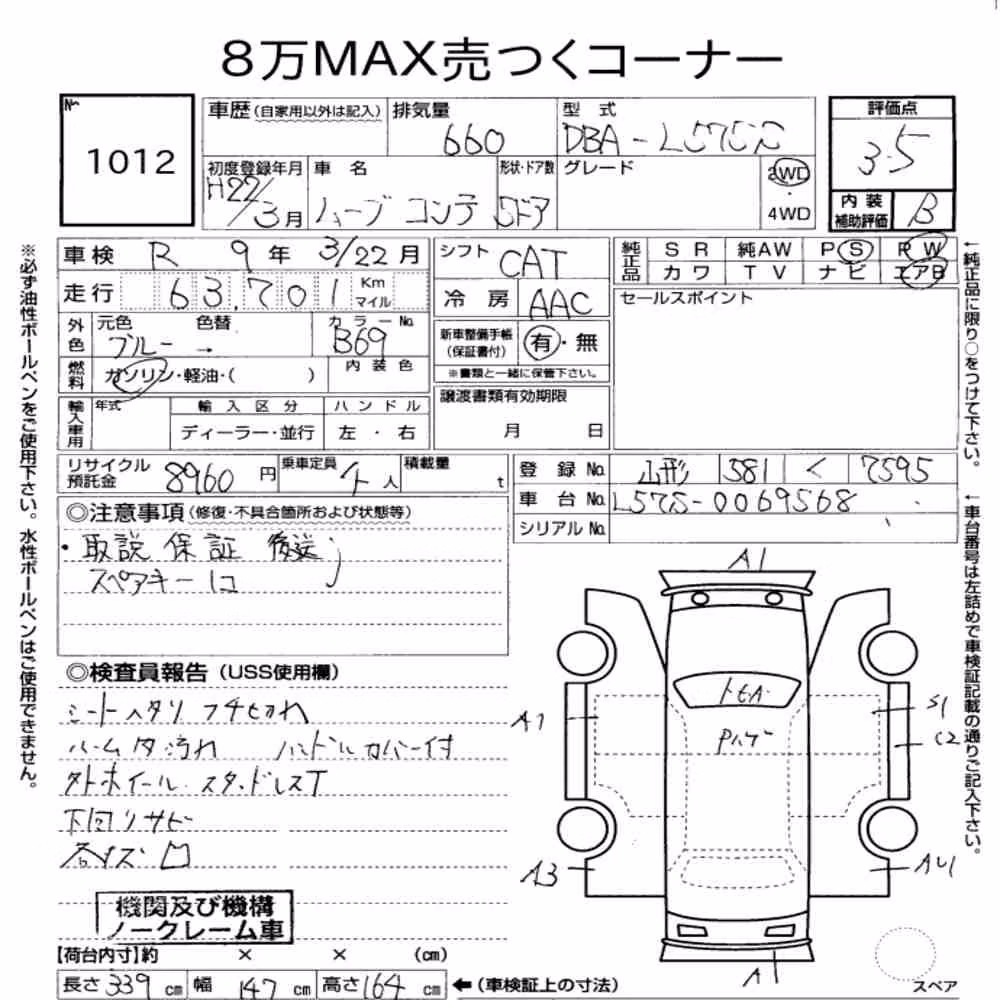 8万MAX売つくコーナー
No.
1012
車歴(自家用以外は記入)
排気量
660
型式
DBA-L575S
評価点
3.5
初度登録年月
H22/3月
車名
ムーブ コンテ
形状・ドア数
5ドア
グレード
2WD
・
4WD
内装
補助評価
B
車検 R 9年 3/22月
シフト CAT
純正品
SR 純AW PS PW
カワ TV ナビ エアB
走行 63,701 Km
マイル
冷房 AAC
セールスポイント
外色
元色 色替 カラーNo.
ブルー → B69
新車整備手帳
(保証書付)
有・無
※書類と一緒に保管下さい。
燃料
ガソリン・軽油・( )
内装色
輸入車用
年式 輸入区分 ハンドル
ディーラー・並行 左・右
譲渡書類有効期限
月 日
リサイクル
預託金
8960円
乗車定員
4人
積載量
t
登録No. 山形 581 く 7595
車台No. L575S-0069568
シリアルNo.
◎注意事項(修復・不具合箇所および状態等)
・取説 保証 後送
スペアキー1コ
◎検査員報告(USS使用欄)
シートヘタリ コゲ切れ
ルーム内汚れ ハンドルカバー付
外ホイール・スタッドレスT
下回リサビ
各キズ凹
機関及び機構
ノークレーム車
【荷台内寸】約 × × (cm)
長さ339cm 幅147cm 高さ164cm ←(車検証上の寸法)
A1
トビA
Pハゲ
A1
S1
C2
A3
A4
A1
スペア
※必ず油性ボールペンをご使用下さい。水性ボールペンはご使用できません。
←純正品に限り○をつけて下さい。
←車台番号は左詰めで車検証記載の通りご記入下さい。